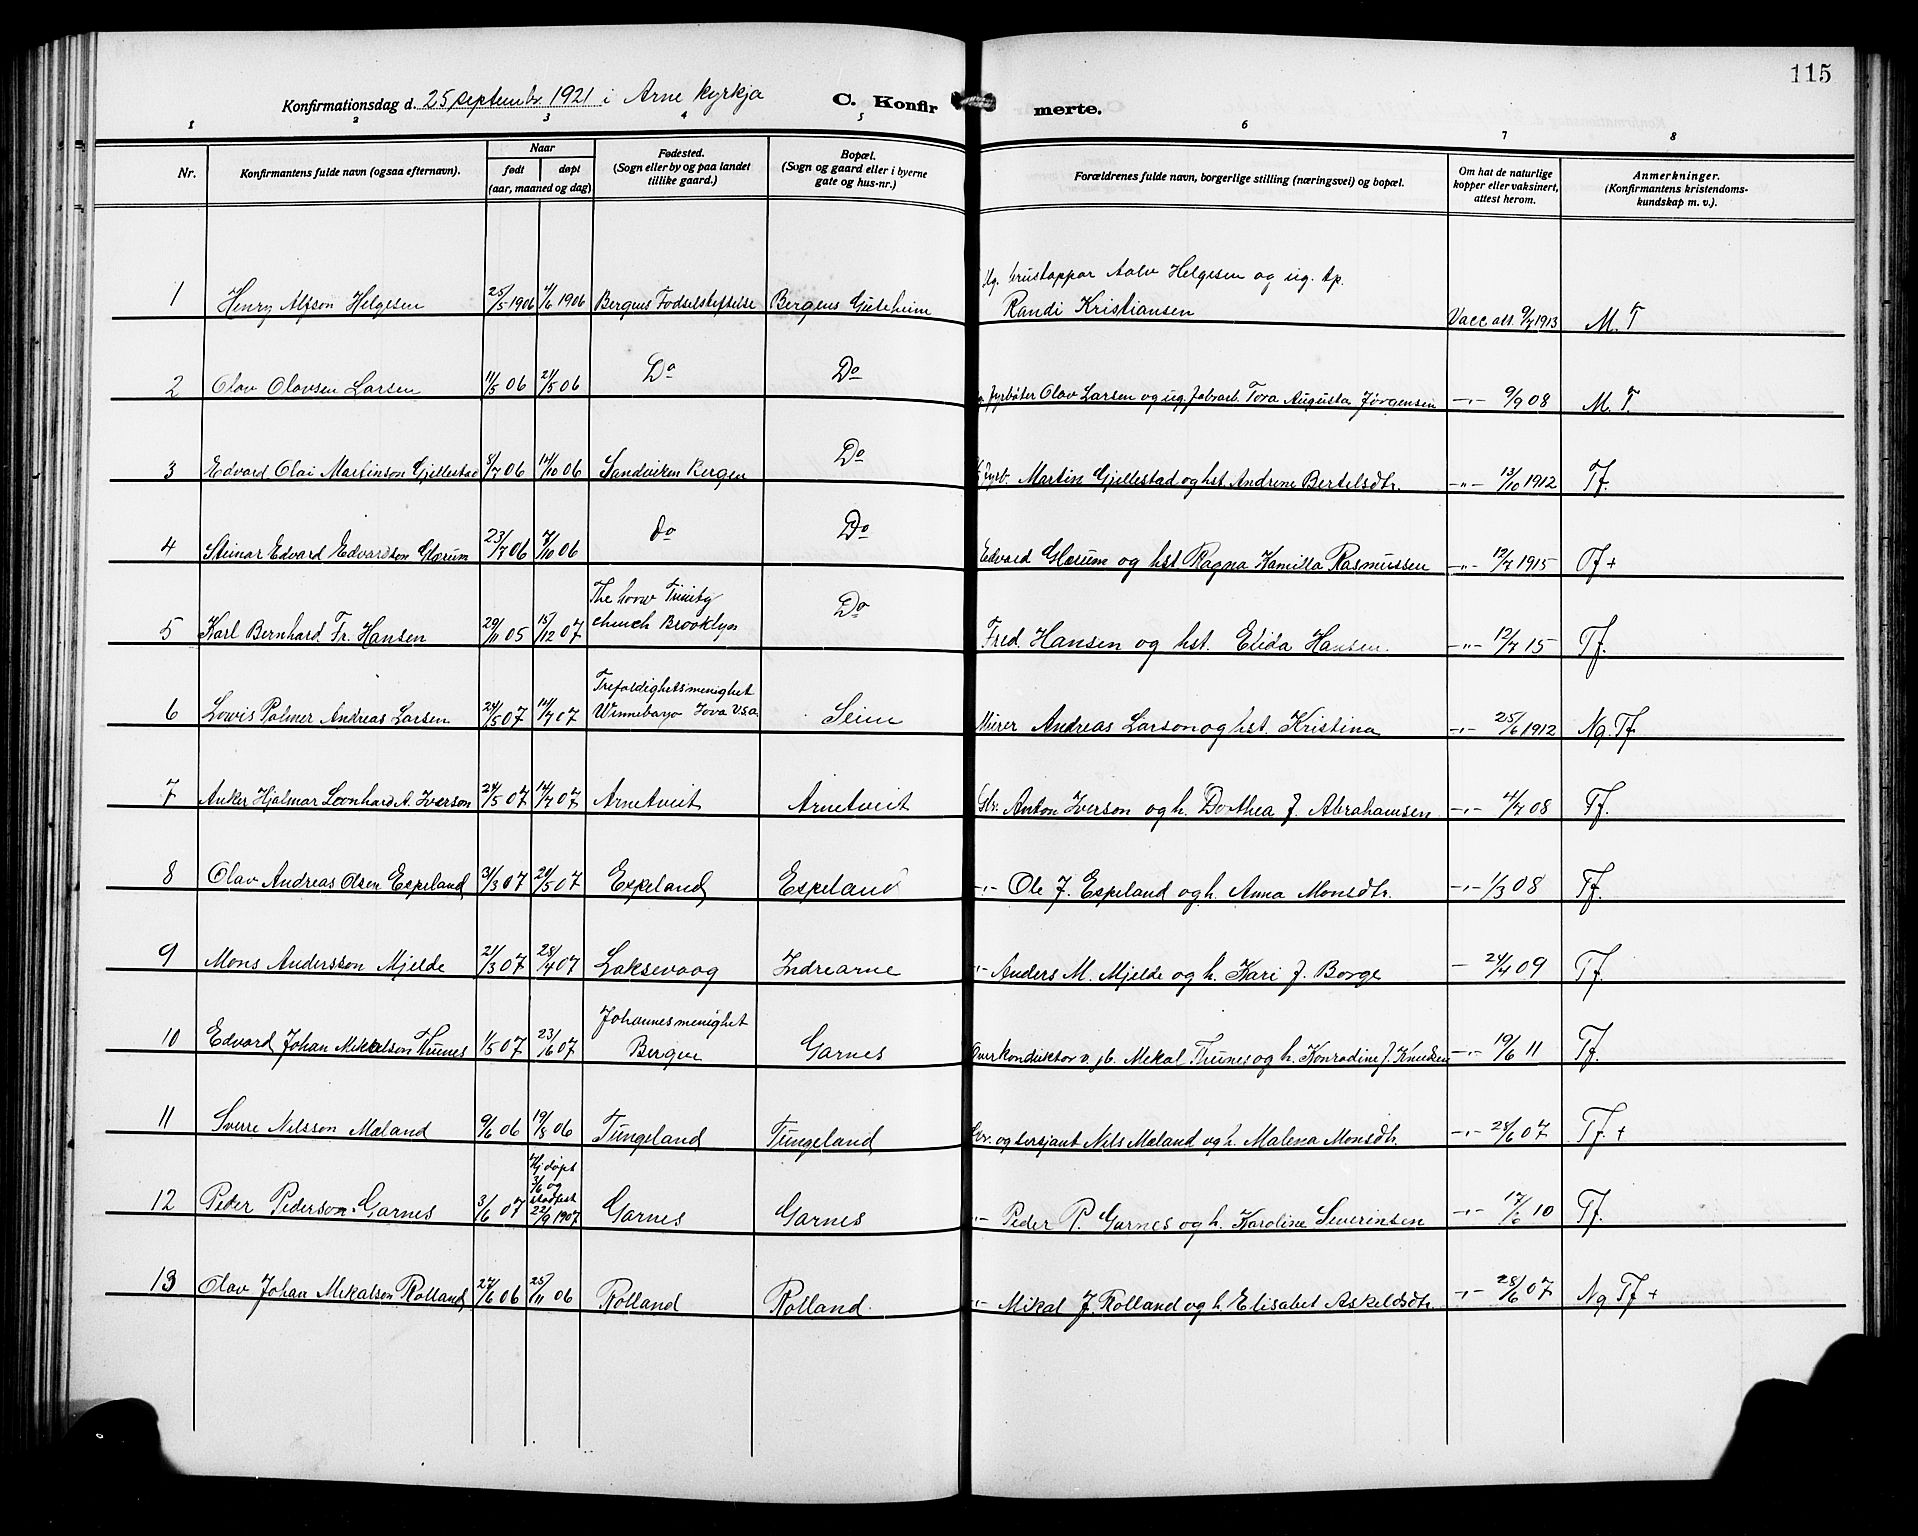 115
Konfirmationsdag d. 25 septembr. 1921 i Arne kyrkja C. Konfirmerte.
1 2 3 4 5 6 7 8
Nr.
Konfirmantens fulde navn (ogsaa efternavn).
Naar
født døpt
(aar, maaned og dag)
Fødested.
(Sogn eller by og paa landet
tillike gaard.)
Bopæl.
(Sogn og gaard eller i byerne
gate og hus-nr.)
Forældrenes fulde navn, borgerlige stilling (næringsvei) og bopæl.
Om hat de naturlige
kopper eller vaksinert,
attest herom.
Anmerkninger.
(Konfirmantens kristendoms-
kundskap m. v.).
Ug. Aalv Helgesen og ug. tp.
1 Henry Alfson Helgesen 25/5 1906 4/6 1906 Bergens Fødselstiftelse Bergens Guteheim Randi Kristiansen Vacc att. 9/7 1913 M. T
2 Olav Olavsen Larsen 11/5 06 21/5 06 Do Do fyrbøter Olav Larsen og ug. fabrarb. Tora Augusta Jørgensen -"- 9/9 08 M. T.
3 Edvard Olai Martinson Gjellestad 8/7 06 14/10 06 Sandviken Bergen Do fyrb. Martin Gjellestad og hst Andrine Bertelsdtr. -"- 13/10 1912 Tf.
4 Steinar Edvard Edvardson Glærum 23/7 06 7/10 06 Do Do Edvard Glærum og hst. Ragna Kamilla Rasmussen -"- 12/7 1915 Of +
The Trinity
5 Karl Bernhard Fr. Hansen 29/11 05 15/12 07 church Brooklyn Do Fred. Hansen og hst. Elida Hansen. -"- 12/7 15 Tf.
Trefoldighetsmenighet
6 Lowis Palmer Andreas Larsen 24/5 07 14/7 07 Winnebayo Iova U.S.a. Seim Murer Andreas Larson og hst. Kristina -"- 25/6 1912 Ng. Tf
7 Anker Hjalmar Leonhard A. Iverson 24/5 07 14/7 07 Arnetveit Arnetveit Gbr. Anton Iverson og h. Dorthea J. Abrahamsen -"- 4/7 08 Tf.
8 Olav Andreas Olsen Espeland 31/3 07 20/5 07 Espeland Espeland -"- Ole J. Espeland og h. Anna Monsdtr. -"- 1/3 08 Tf.
9 Mons Andersson Mjelde 21/3 07 28/4 07 Laksevaag Indrearne -"- Anders M. Mjelde og h. Kari J. Borge - 24/4 09 Tf.
Johannesmenighet
10 Edvard Johan Mikalson Thunes 1/5 07 23/6 07 Bergen Garnes Overkonduktør v. jb. Mekal Thunes og h. Konradine J. Knudsen -"- 19/6 11 Tf.
11 Sverre Nilsson Mæland 9/6 06 19/8 06 Tungeland Tungeland Gbr. og sersjant Nils Mæland og h. Malena Monsdtr. -"- 28/6 07 Tf. +
Hj døpt
3/6 og
stadfest
12 Peder Pederson Garnes 3/6 07 22/9 1907 Garnes Garnes -"- Peder P. Garnes og h. Karoline Severinsen -"- 17/6 10 Tf.
13 Olav Johan Mikalson Rolland 27/6 06 25/11 06 Rolland Rolland. -"- Mikal J. Rolland og h. Elisabet Askeldsdtr. -"- 28/6 07 Ng Tf +